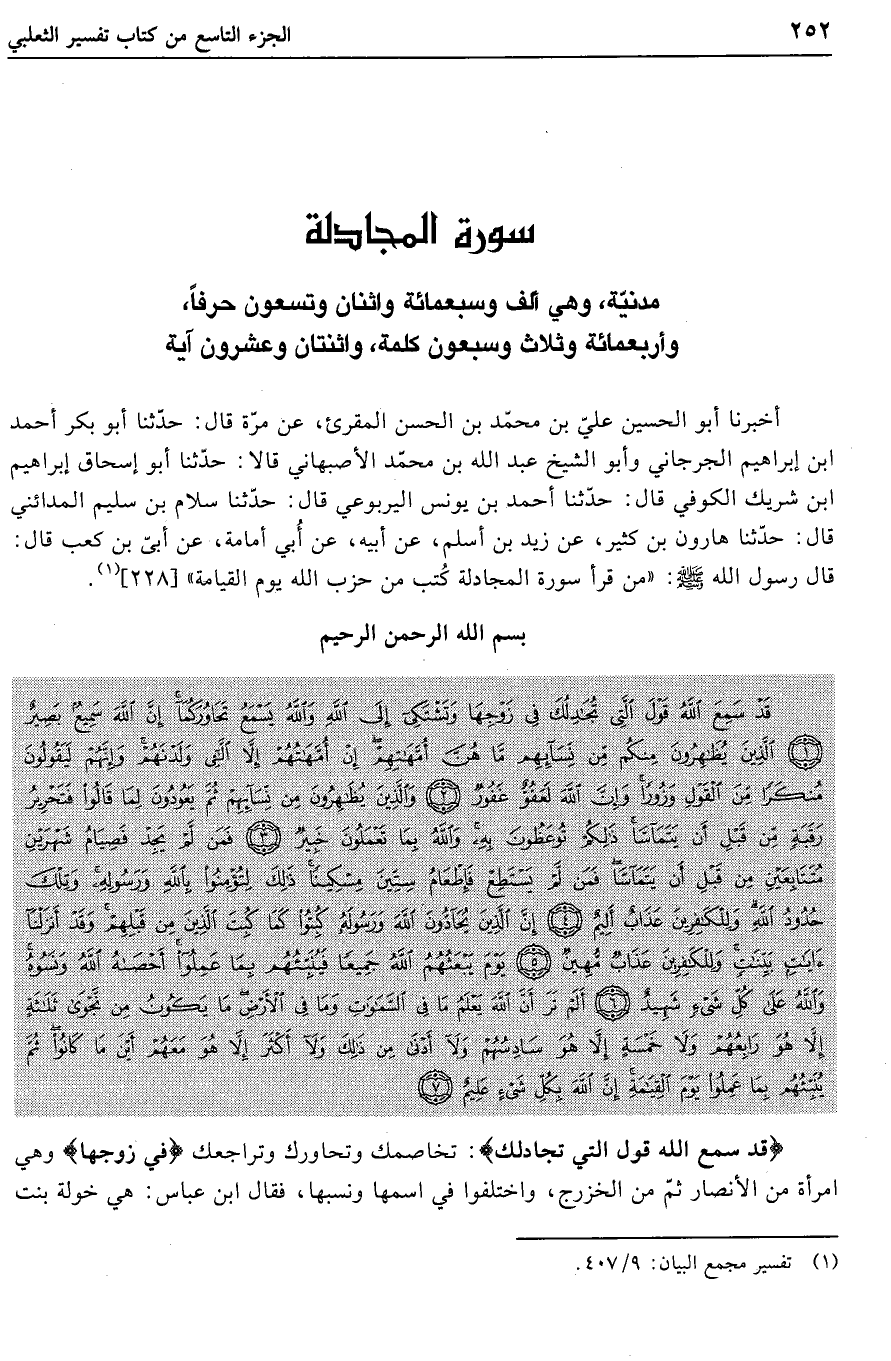 ٢٥٢ الجزء التاسع من كتاب تفسير الثعلبي
سورة المجادلة
مدنيّة، وهي ألف وسبعمائة واثنان وتسعون حرفاً،
وأربعمائة وثلاث وسبعون كلمة، واثنتان وعشرون آية
أخبرنا أبو الحسين عليّ بن محمّد بن الحسن المقرئ، عن مرّة قال: حدّثنا أبو بكر أحمد
ابن إبراهيم الجرجاني وأبو الشيخ عبد الله بن محمّد الأصبهاني قالا: حدّثنا أبو إسحاق إبراهيم
ابن شريك الكوفي قال: حدّثنا أحمد بن يونس اليربوعي قال: حدّثنا سلام بن سليم المدائني
قال: حدّثنا هارون بن كثير، عن زيد بن أسلم، عن أبيه، عن أُبي أمامة، عن أبىّ بن كعب قال:
قال رسول الله ﷺ: «من قرأ سورة المجادلة كُتب من حزب الله يوم القيامة» [٢٢٨](١).
بسم الله الرحمن الرحيم
قَدْ سَمِعَ ٱللَّهُ قَوْلَ ٱلَّتِى تُجَٰدِلُكَ فِى زَوْجِهَا وَتَشْتَكِىٓ إِلَى ٱللَّهِ وَٱللَّهُ يَسْمَعُ تَحَاوُرَكُمَآ إِنَّ ٱللَّهَ سَمِيعٌۢ بَصِيرٌ
﴿١﴾ ٱلَّذِينَ يُظَٰهِرُونَ مِنكُم مِّن نِّسَآئِهِم مَّا هُنَّ أُمَّهَٰتِهِمْ إِنْ أُمَّهَٰتُهُمْ إِلَّا ٱلَّٰٓـِٔى وَلَدْنَهُمْ وَإِنَّهُمْ لَيَقُولُونَ
مُنكَرًا مِّنَ ٱلْقَوْلِ وَزُورًا وَإِنَّ ٱللَّهَ لَعَفُوٌّ غَفُورٌ ﴿٢﴾ وَٱلَّذِينَ يُظَٰهِرُونَ مِن نِّسَآئِهِمْ ثُمَّ يَعُودُونَ لِمَا قَالُوا۟ فَتَحْرِيرُ
رَقَبَةٍ مِّن قَبْلِ أَن يَتَمَآسَّا ذَٰلِكُمْ تُوعَظُونَ بِهِۦ وَٱللَّهُ بِمَا تَعْمَلُونَ خَبِيرٌ ﴿٣﴾ فَمَن لَّمْ يَجِدْ فَصِيَامُ شَهْرَيْنِ
مُتَتَابِعَيْنِ مِن قَبْلِ أَن يَتَمَآسَّا فَمَن لَّمْ يَسْتَطِعْ فَإِطْعَامُ سِتِّينَ مِسْكِينًا ذَٰلِكَ لِتُؤْمِنُوا۟ بِٱللَّهِ وَرَسُولِهِۦ وَتِلْكَ
حُدُودُ ٱللَّهِ وَلِلْكَٰفِرِينَ عَذَابٌ أَلِيمٌ ﴿٤﴾ إِنَّ ٱلَّذِينَ يُحَآدُّونَ ٱللَّهَ وَرَسُولَهُۥ كُبِتُوا۟ كَمَا كُبِتَ ٱلَّذِينَ مِن قَبْلِهِمْ وَقَدْ أَنزَلْنَآ
ءَايَٰتٍۭ بَيِّنَٰتٍ وَلِلْكَٰفِرِينَ عَذَابٌ مُّهِينٌ ﴿٥﴾ يَوْمَ يَبْعَثُهُمُ ٱللَّهُ جَمِيعًا فَيُنَبِّئُهُم بِمَا عَمِلُوٓا۟ أَحْصَىٰهُ ٱللَّهُ وَنَسُوهُ
وَٱللَّهُ عَلَىٰ كُلِّ شَىْءٍ شَهِيدٌ ﴿٦﴾ أَلَمْ تَرَ أَنَّ ٱللَّهَ يَعْلَمُ مَا فِى ٱلسَّمَٰوَٰتِ وَمَا فِى ٱلْأَرْضِ مَا يَكُونُ مِن نَّجْوَىٰ ثَلَٰثَةٍ
إِلَّا هُوَ رَابِعُهُمْ وَلَا خَمْسَةٍ إِلَّا هُوَ سَادِسُهُمْ وَلَآ أَدْنَىٰ مِن ذَٰلِكَ وَلَآ أَكْثَرَ إِلَّا هُوَ مَعَهُمْ أَيْنَ مَا كَانُوا۟ ثُمَّ
يُنَبِّئُهُم بِمَا عَمِلُوا۟ يَوْمَ ٱلْقِيَٰمَةِ إِنَّ ٱللَّهَ بِكُلِّ شَىْءٍ عَلِيمٌ ﴿٧﴾
﴿قد سمع الله قول التي تجادلك﴾: تخاصمك وتحاورك وتراجعك ﴿في زوجها﴾ وهي
امرأة من الأنصار ثمّ من الخزرج، واختلفوا في اسمها ونسبها، فقال ابن عباس: هي خولة بنت
(١) تفسير مجمع البيان: ٩/ ٤٠٧.